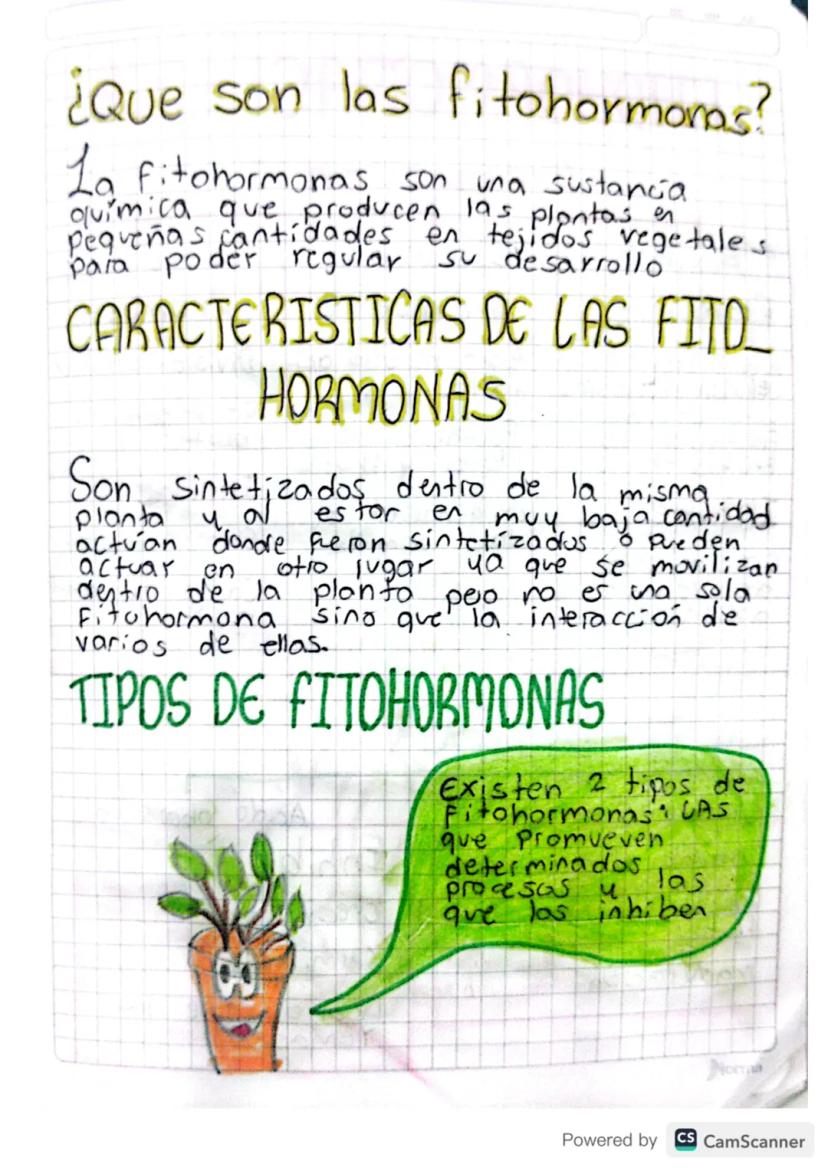 ¿Que son las fitohormonas?
La fitohormonas son una sustancia
química que producen las plantas en
pequeñas cantidades en tejidos vegetales
para poder regular su desarrollo
CARACTERISTICAS DE LAS FITO_
HORMONAS
Son sintetizados dentro de la misma
planta y al estar en muy baja cantidad
actúan donde fueron sintetizados o pueden
actuar en otro lugar ya que se movilizan
dentro de la planta pero no es una sola
fitohormona sino que la interacción de
varios de ellas.
TIPOS DE FITOHORMONAS
Existen 2 tipos de
fitohormonas: LAS
que promueven
determinados
procesos y las
que los inhiben
Norma
Powered by CS CamScanner